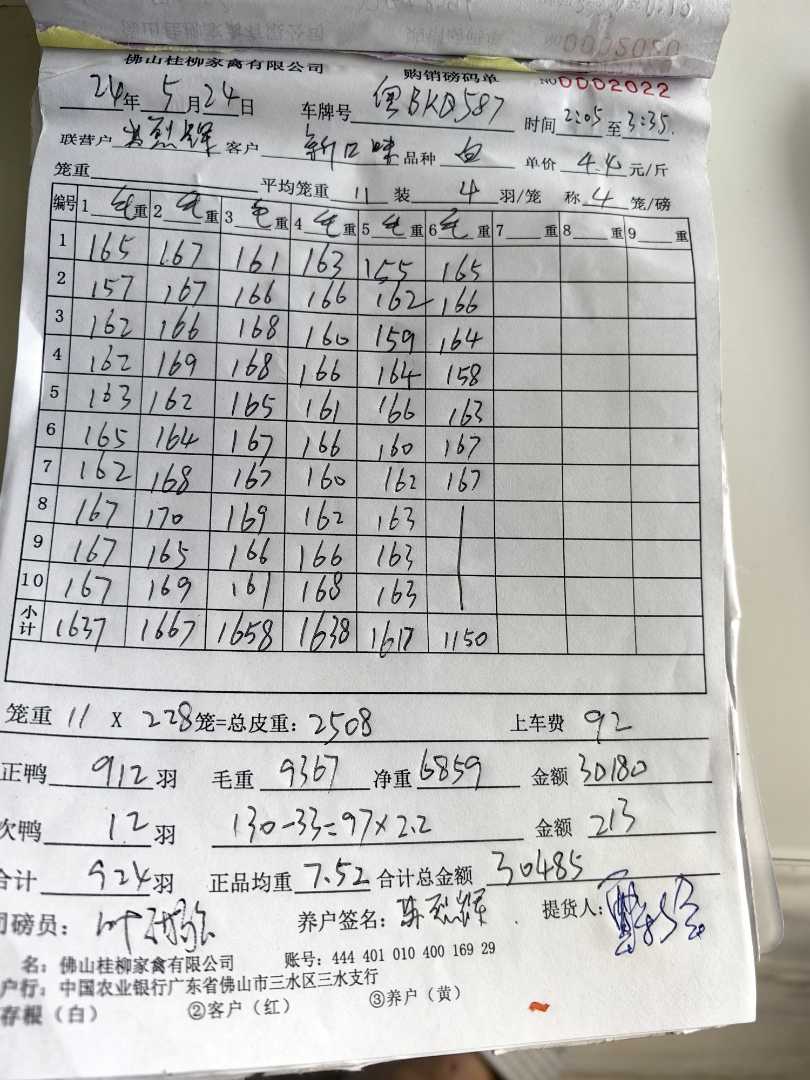 0002020
佛山桂柳家禽有限公司 购销磅码单 NO 0002022
24年 5月24日 车牌号 粤BKD587 时间 2:05 至 3:35.
联营户 烈辉 客户 新口味 品种 白 单价 4.4 元/斤
笼重 平均笼重 11 装 4 羽/笼 称 4 笼/磅
编号 1 毛重 2 毛重 3 毛重 4 毛重 5 毛重 6 毛重 7 重 8 重 9 重
1 165 167 161 163 155 165
2 157 167 166 166 162 166
3 162 166 168 160 159 164
4 162 169 168 166 164 158
5 163 162 165 161 166 163
6 165 164 167 166 160 167
7 162 168 167 160 162 167
8 167 170 169 162 163
9 167 165 166 166 163
10 167 169 161 168 163
小计 1637 1667 1658 1638 1617 1150
笼重 11 X 228笼=总皮重:2508 上车费 92
正鸭 912 羽 毛重 9367 净重 6859 金额 30180
次鸭 12 羽 130-33=97×2.2 金额 213
合计 924 羽 正品均重 7.52 合计总金额 30485
司磅员: 叶 养户签名: 陈烈辉 提货人:
名: 佛山桂柳家禽有限公司 账号: 444 401 010 400 169 29
户行: 中国农业银行广东省佛山市三水区三水支行
存根(白) ②客户(红) ③养户(黄)